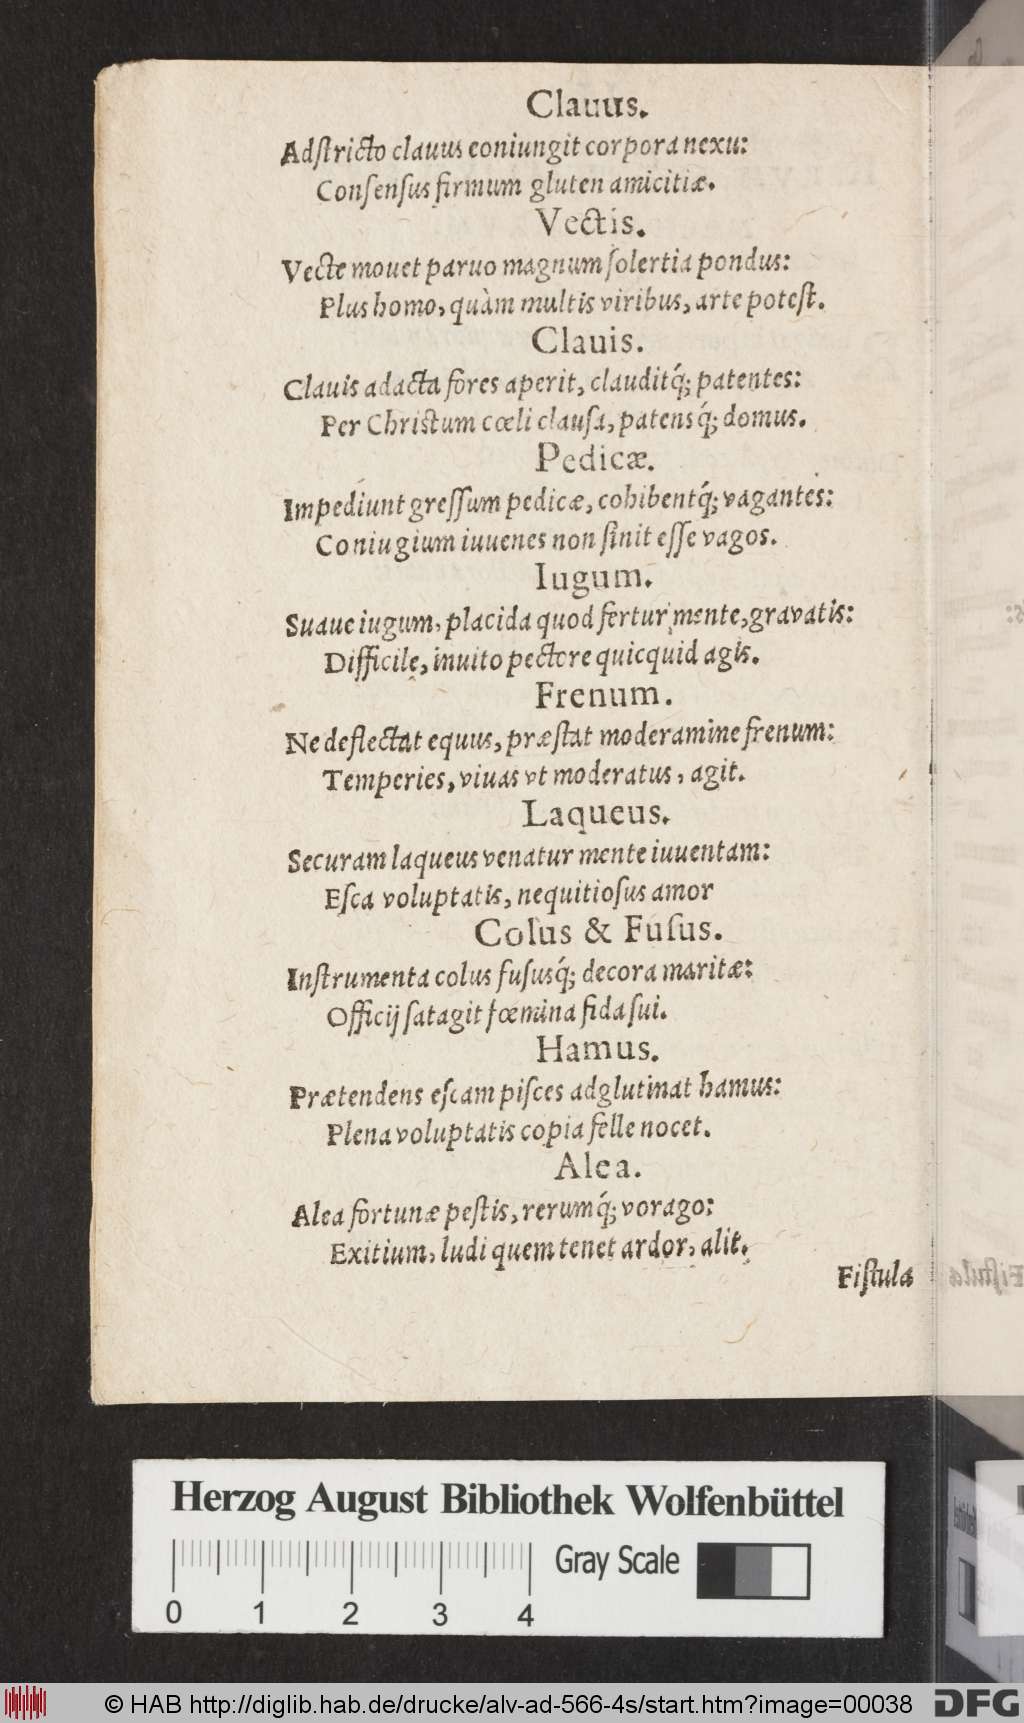 Clauus.
Adſtricto clauus coniungit corpora nexu:
Conſenſus firmum gluten amicitiæ.
Vectis.
Vecte mouet paruo magnum ſolertia pondus:
Plus homo, quàm multis viribus, arte poteſt.
Clauis.
Clauis adacta fores aperit, clauditq́; patentes:
Per Christum cœli clauſa, patensq́; domus.
Pedicæ.
Impediunt greſſum pedicæ, cohibentq́; vagantes:
Coniugium iuuenes non ſinit eſſe vagos.
Iugum.
Suaue iugum, placida quod fertur mente, gravatis:
Difficile, inuito pectore quicquid agis.
Frenum.
Ne deflectat equus, præſtat moderamine frenum:
Temperies, viuas vt moderatus, agit.
Laqueus.
Securam laqueus venatur mente iuuentam:
Eſca voluptatis, nequitioſus amor
Colus & Fuſus.
Inſtrumenta colus fuſusq́; decora maritæ:
Officij ſatagit fœmina fida ſui.
Hamus.
Prætendens eſcam piſces adglutinat hamus:
Plena voluptatis copia felle nocet.
Alea.
Alea fortunæ peſtis, rerumq́; vorago:
Exitium, ludi quem tenet ardor, alit.
Fiſtula
Herzog August Bibliothek Wolfenbüttel
Gray Scale
0 1 2 3 4
© HAB http://diglib.hab.de/drucke/alv-ad-566-4s/start.htm?image=00038 DFG